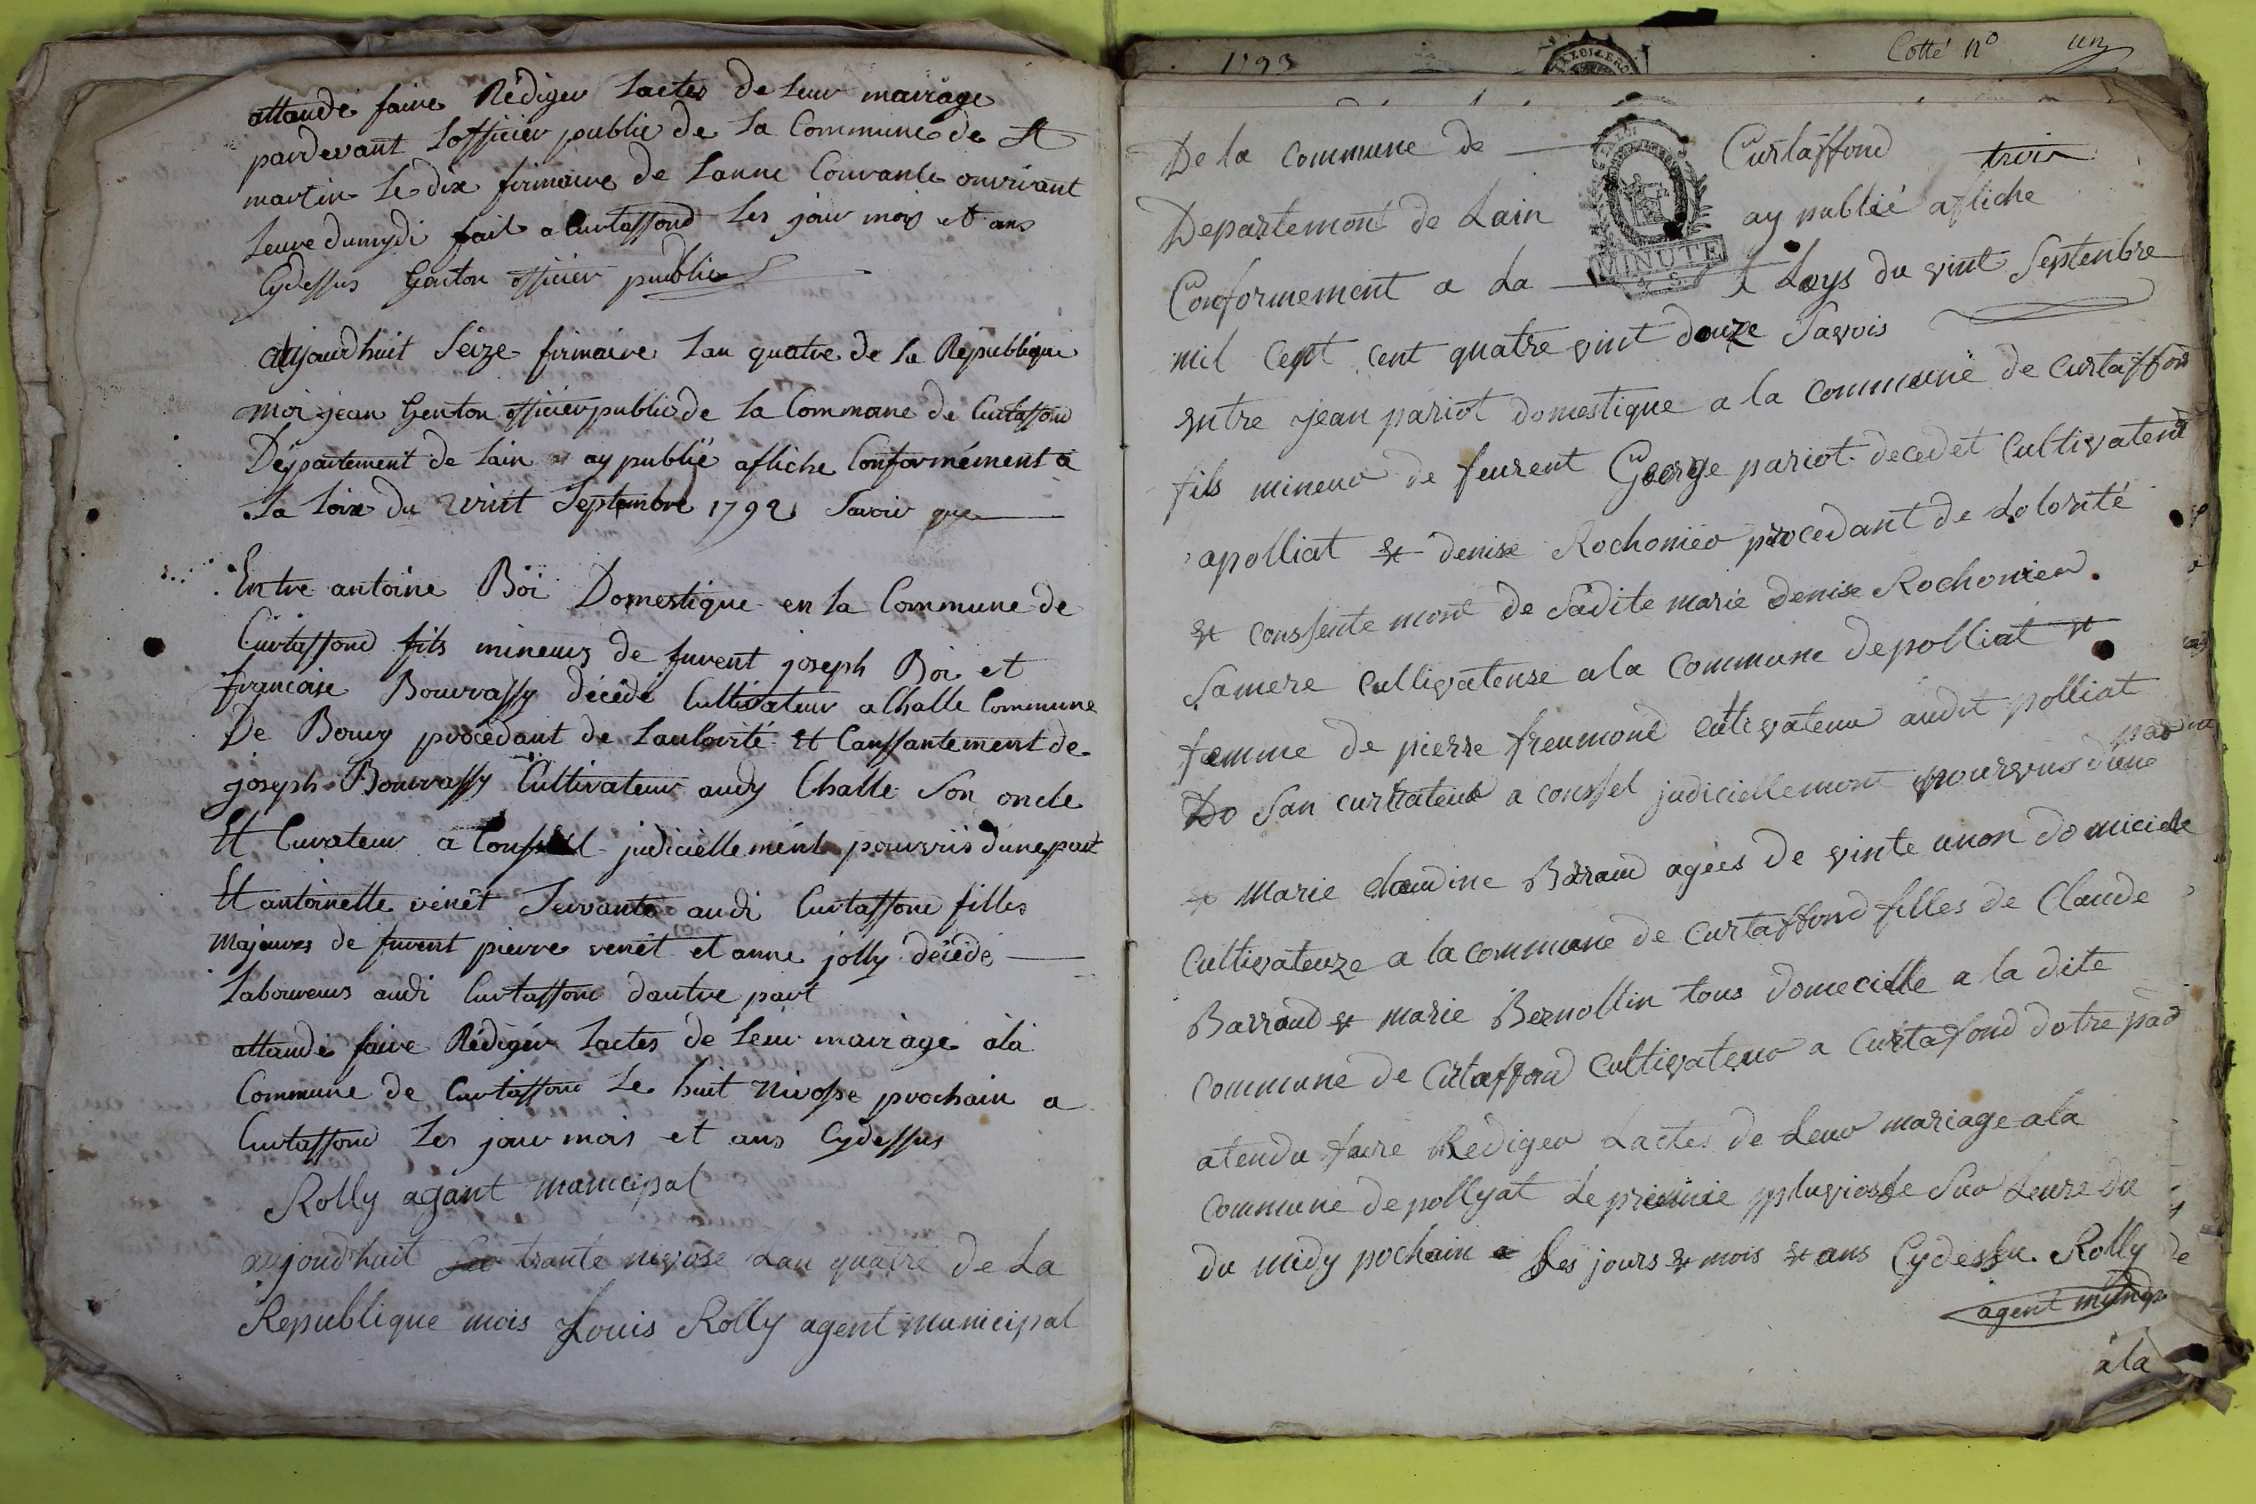 attandé faire Rédiger Lactes de Leur mairage
pardevant Lofficier public de La Commune de St
martin Le dix firmaire de Lanne Courante onvirant
Leure dumydi fait a Curtaffond Les jour mois et ans
Cydessus Genton officier public
aujourdhuit Seize firmaire Lan quatre de La République
moi jean Genton officier public de La Commune de Curtaffond
Département de Lain ay publié affiche Conformément a
La Loix du vint Septembre 1792 Savoir que
Entre antoine Boi Domestique en La Commune de
Curtaffond fils mineurs de furent joseph Boi et
francoise Bourrassy décédé Cultivateur a Challe Commune
De Bourg procédant de Lautorité et Consantement de
joseph Bourrassy Cultivateur audy Challe Son oncle
Et Curateur a Conseil judiciellement pourvis dune part
Et antoinette venêt Servante audi Curtaffond filles
Majeures de furent pierre venêt et anne jolly décédé
Laboureurs audi Curtaffond dautre part
attandé faire Rédiger Lactes de Leur mairage àla
Commune de Curtaffond Le huit Nivose prochain a
Curtaffond Les jour mois et ans Cydessus
Rolly agant municipal
aujoudhuit trante nivose Lan quatre de La
Republique mois Louis Rolly agent municipal
1793
Cotté n° un
De la commune de Curtaffond trois
Departement de Lain ay publié afliche
Conformement a La Loys du vint Septenbre
MINUTE
mil cept cent quatre vint douze Savois
entre jean pariot domestique a la commune de curtaffond
fils mineur de feurent George pariot decedet Cultivateur
apolliat & denise Rochonier procedant de Lolorité
& consentemont de Sadite marie denise Rochonier
Samere cultivateuse a la commune depolliat &
femme de pierre freumond cultivateur audit polliat
Do San curateur a conssel judiciellemont pourvus dune
par
& marie claudine Baraud agées de vinte unon domicile
Cultivateuze a la commune de curtaffond filles de Claude
Barraud & marie Bernollin tous domecielle a la dite
commune de Cirtaffond cultivateur a curtafond dotre par
atendu faire Rédiger Lactes de Leur mariage ala
commune depollyat Le premie ppluviosse Sur Leure du
du midy pochain a Les jours & mois & ans Cydessu Rolly
agent
àla